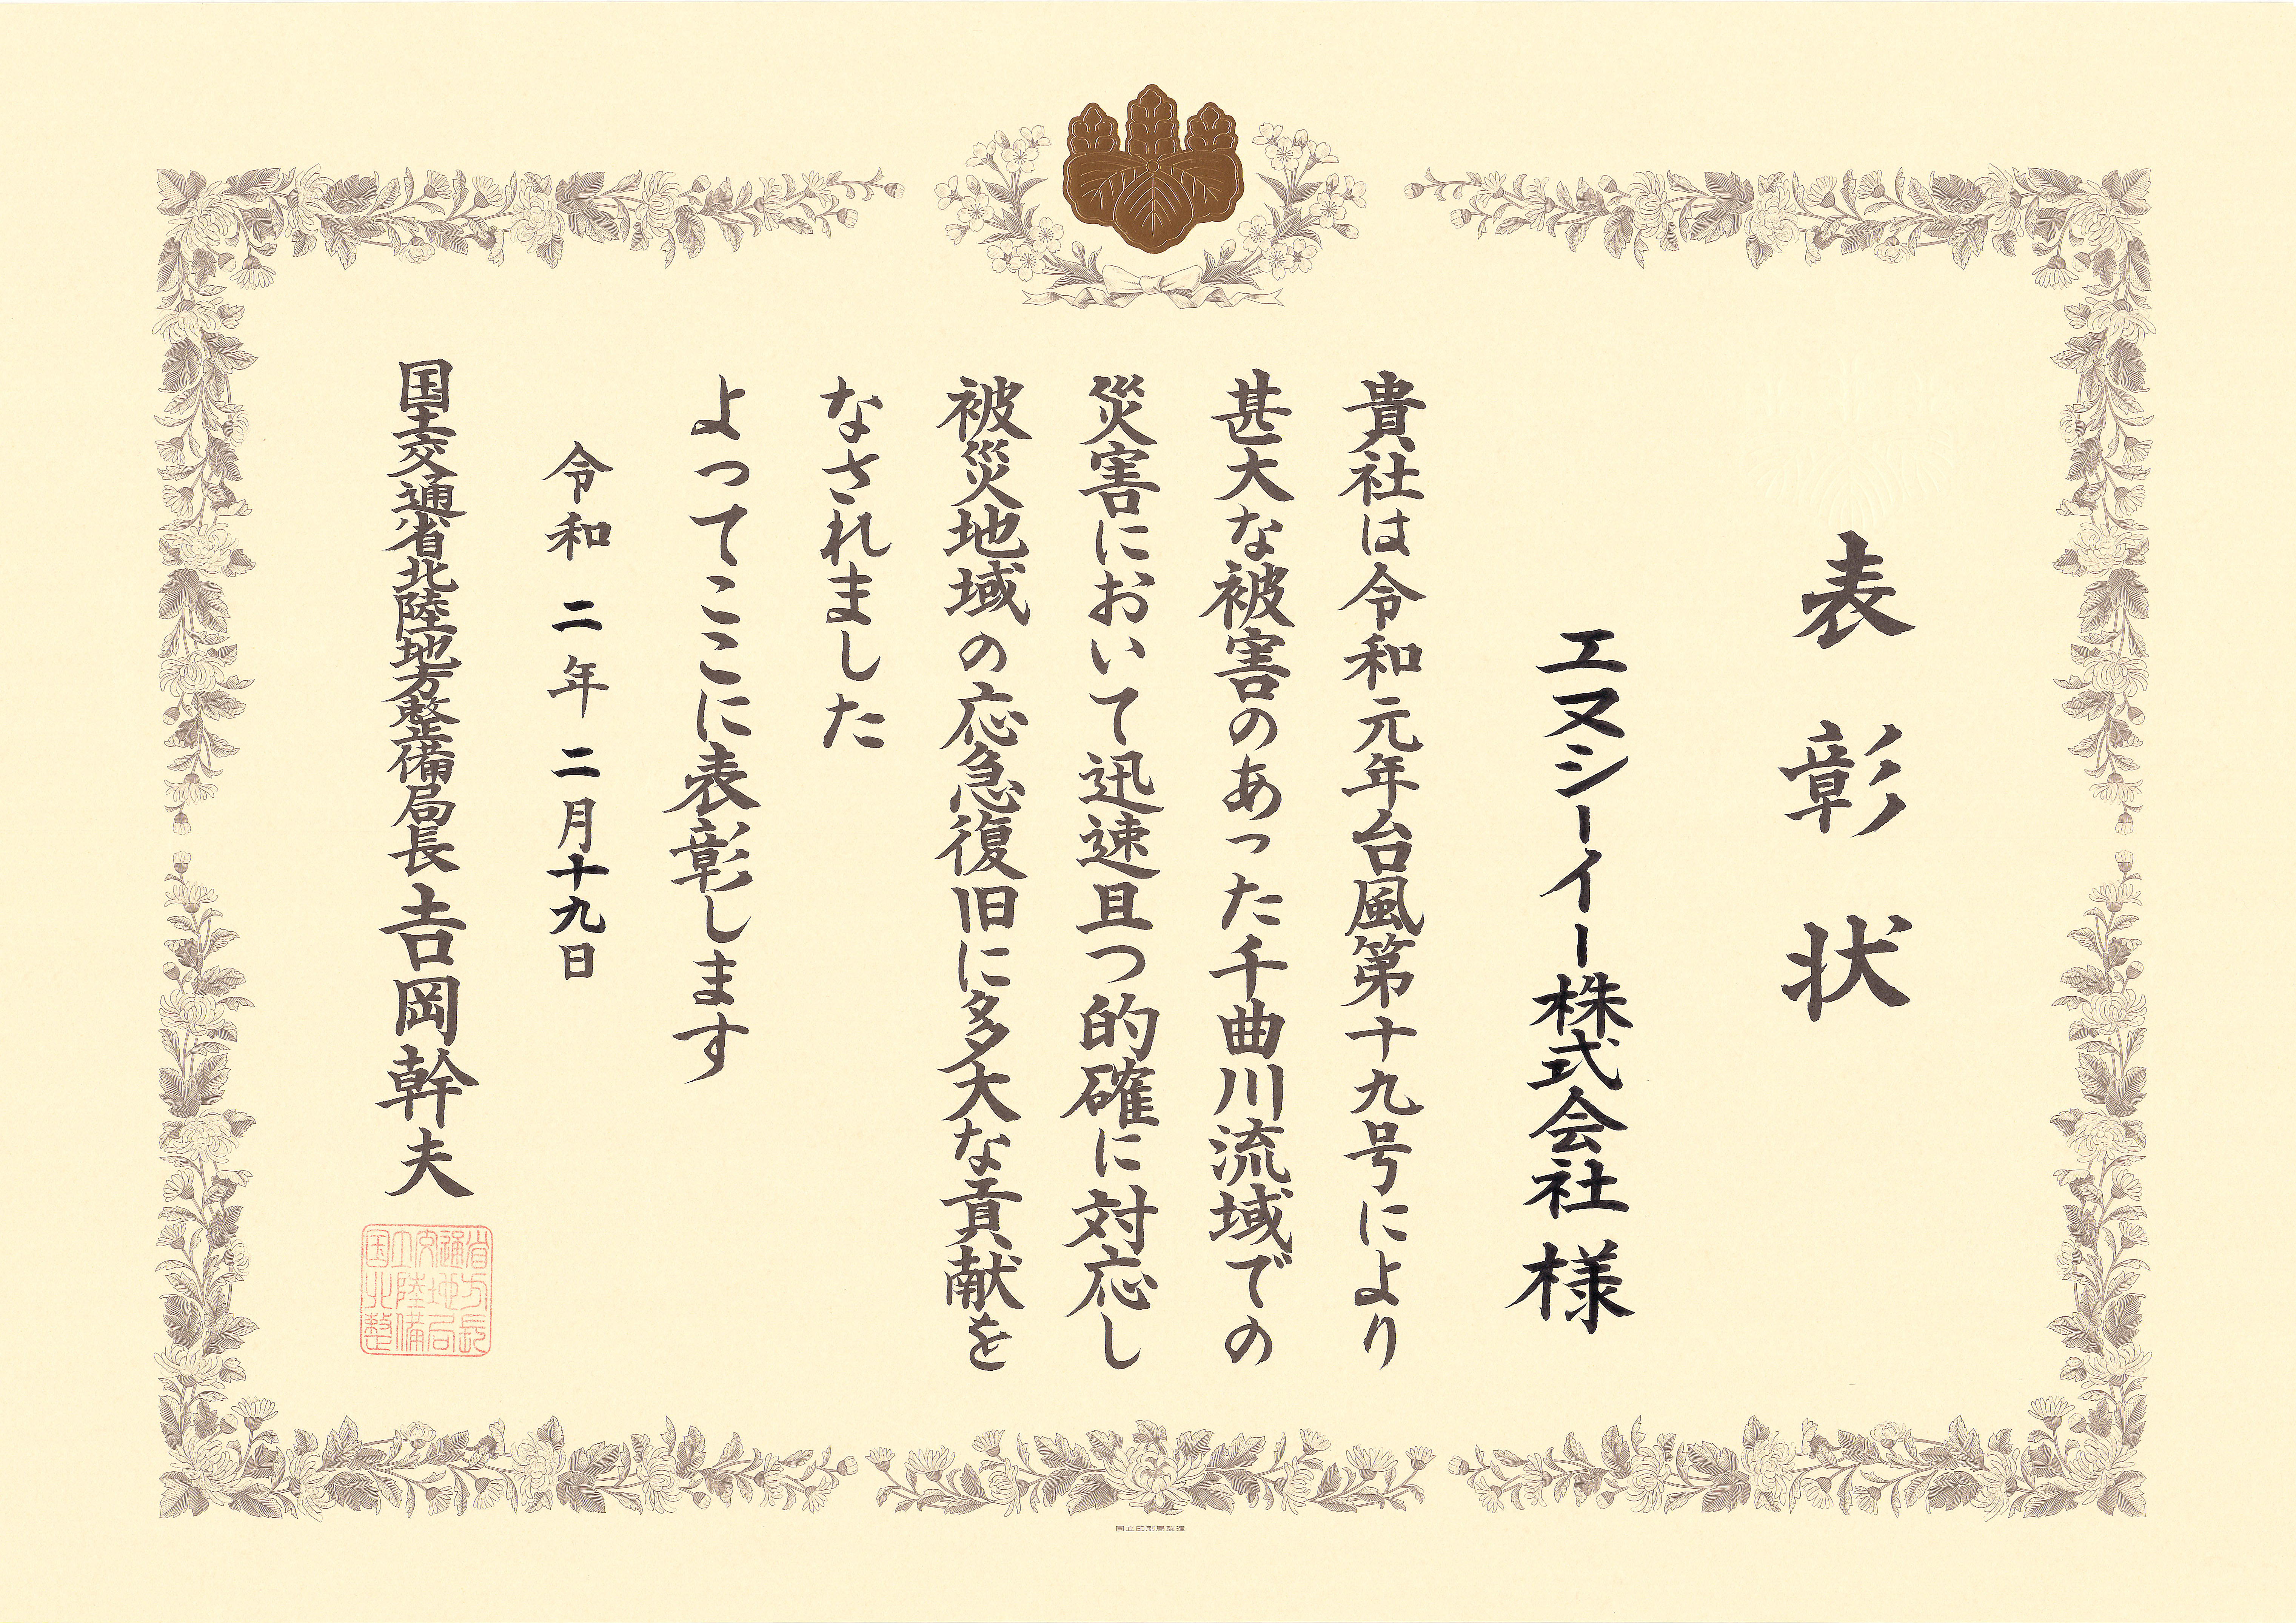 表彰状
エヌシーイー株式会社 様
貴社は令和元年台風第十九号により
甚大な被害のあった千曲川流域での
災害において迅速且つ的確に対応し
被災地域の応急復旧に多大な貢献を
なされました
よってここに表彰します
令和二年二月十九日
国土交通省北陸地方整備局長 吉岡幹夫
国土交通省
北陸地方
整備局長
国立印刷局製造